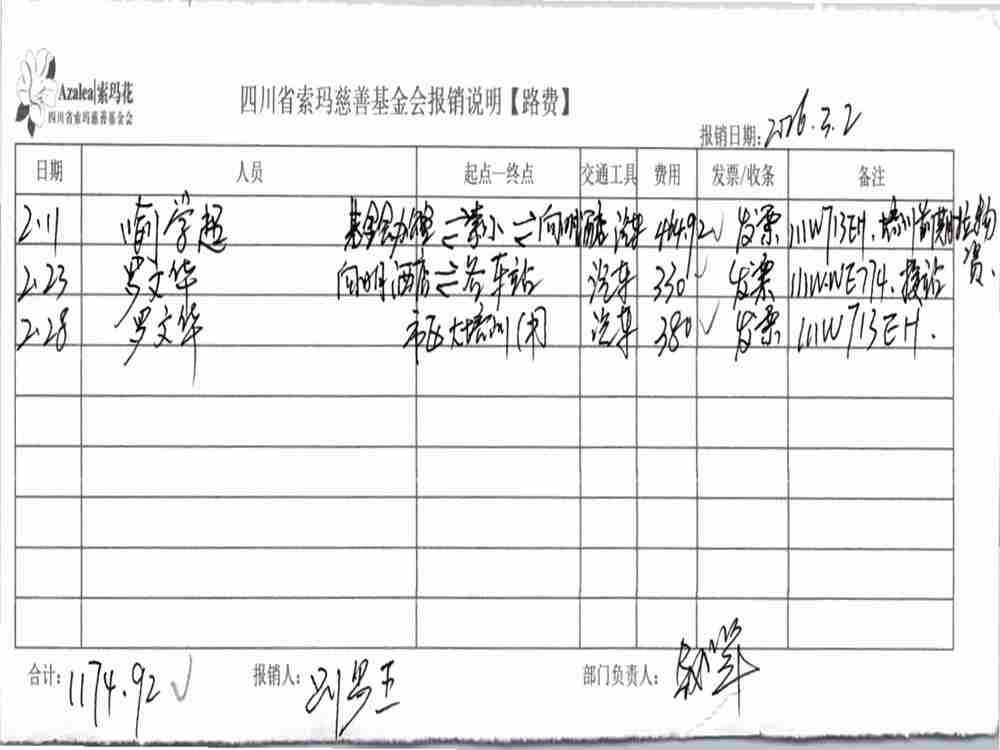 Azalea|索玛花
四川省索玛慈善基金会
四川省索玛慈善基金会报销说明【路费】
报销日期：2026.3.2
日期 人员 起点—终点 交通工具 费用 发票/收条 备注
2.11 学超 基金会办公室⇌索小⇌向明酒店 汽车 464.92 发票 川W713EH.培训前期拉物资.
2.23 罗文华 向明酒店⇌各车站 汽车 330 发票 川W.WE774.接站
2.28 罗文华 市区大培训 汽车 380 发票 川W713EH.
合计：1174.92 报销人： 部门负责人：